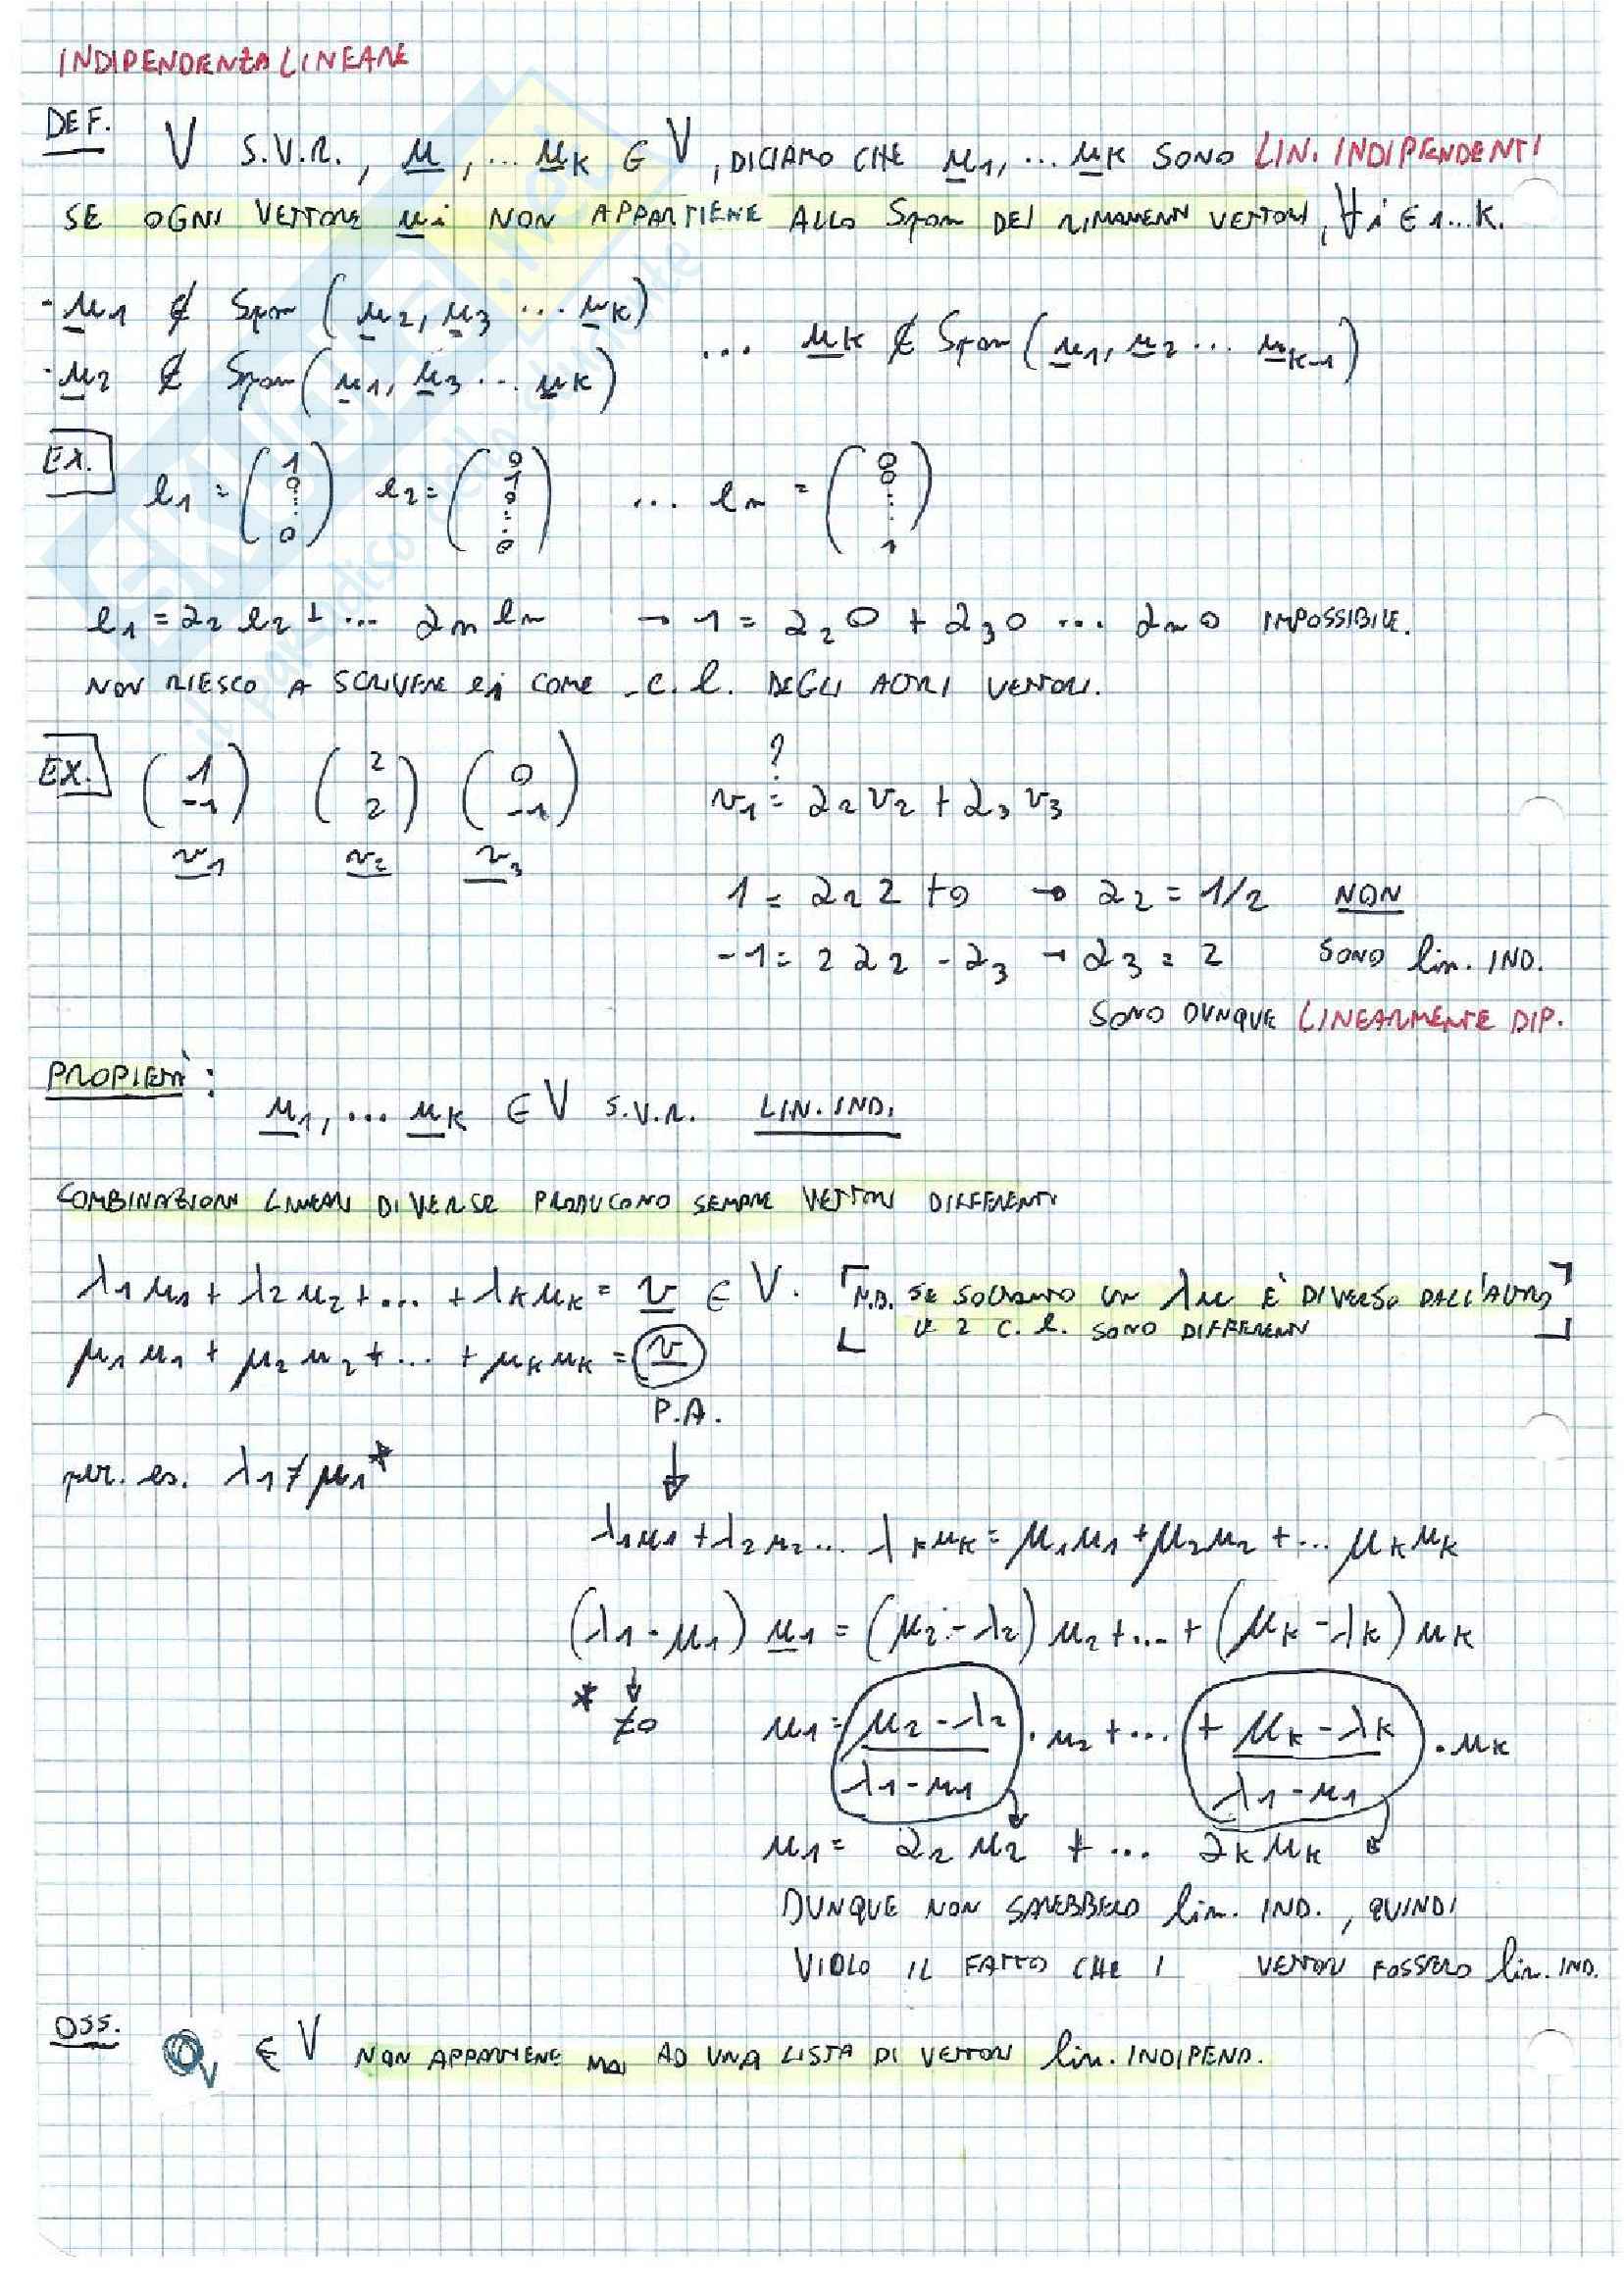 INDIPENDENZA LINEARE
DEF. V S.V.R., u, ... uk ∈ V, DICIAMO CHE u1, ... uk SONO LIN. INDIPENDENTI
SE OGNI VETTORE ui NON APPARTIENE ALLO Span DEI RIMANENTI VETTORI, ∀i ∈ 1...K.
- u1 ∉ Span (u2, u3 ... uk)
- u2 ∉ Span (u1, u3 ... uk) ... uk ∉ Span (u1, u2 ... uk-1)
EX. e1 = (1 0 ... 0) e2 = (0 1 0 ... 0) ... en = (0 0 ... 1)
e1 = α2 e2 + ... αn en → 1 = α2 0 + α3 0 ... αn 0 IMPOSSIBILE.
NON RIESCO A SCRIVERE e1 COME C.l. DEGLI ALTRI VETTORI.
EX. (1 -1) (2 2) (0 -1)
v1 v2 v3
?
v1 = α2 v2 + α3 v3
1 = α2 2 + 0 → α2 = 1/2 NON
-1 = 2 α2 - α3 → α3 = 2 SONO lin. IND.
SONO DUNQUE LINEARMENTE DIP.
PROPIETÀ:
u1, ... uk ∈ V S.V.R. LIN. IND.
COMBINAZIONI LINEARI DIVERSE PRODUCONO SEMPRE VETTORI DIFFERENTI
λ1 u1 + λ2 u2 + ... + λk uk = v ∈ V. [N.B. SE SOLTANTO UN λu È DIVERSO DALL'ALTRO
LE 2 C.l. SONO DIFFERENTI]
μ1 u1 + μ2 u2 + ... + μk uk = v
P.A.
per. es. λ1 ≠ μ1*
↓
λ1 u1 + λ2 u2 ... λk uk = μ1 u1 + μ2 u2 + ... μk uk
(λ1 - μ1) u1 = (μ2 - λ2) u2 + ... + (μk - λk) uk
* ↓ ≠0
u1 = (μ2 - λ2)/(λ1 - μ1) · u2 + ... + (μk - λk)/(λ1 - μ1) · uk
u1 = α2 u2 + ... αk uk
DUNQUE NON SAREBBERO lin. IND., QUINDI
VIOLO IL FATTO CHE I VETTORI FOSSERO lin. IND.
OSS. 0V ∈ V NON APPARTIENE MAI AD UNA LISTA DI VETTORI lin. INDIPEND.